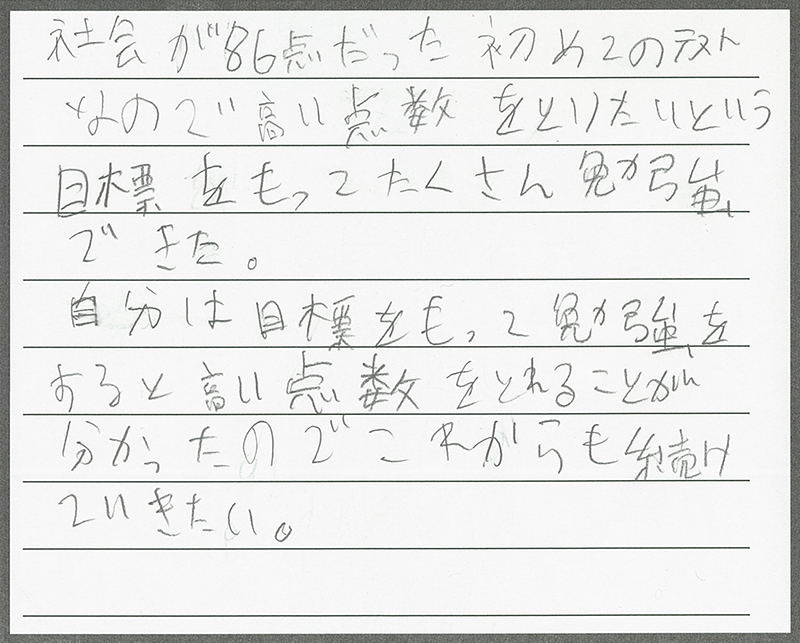 社会が86点だった初めてのテスト
なので高い点数をとりたいという
目標をもってたくさん勉強
できた。
自分は目標をもって勉強を
すると高い点数をとれることが
分かったのでこれからも続け
ていきたい。